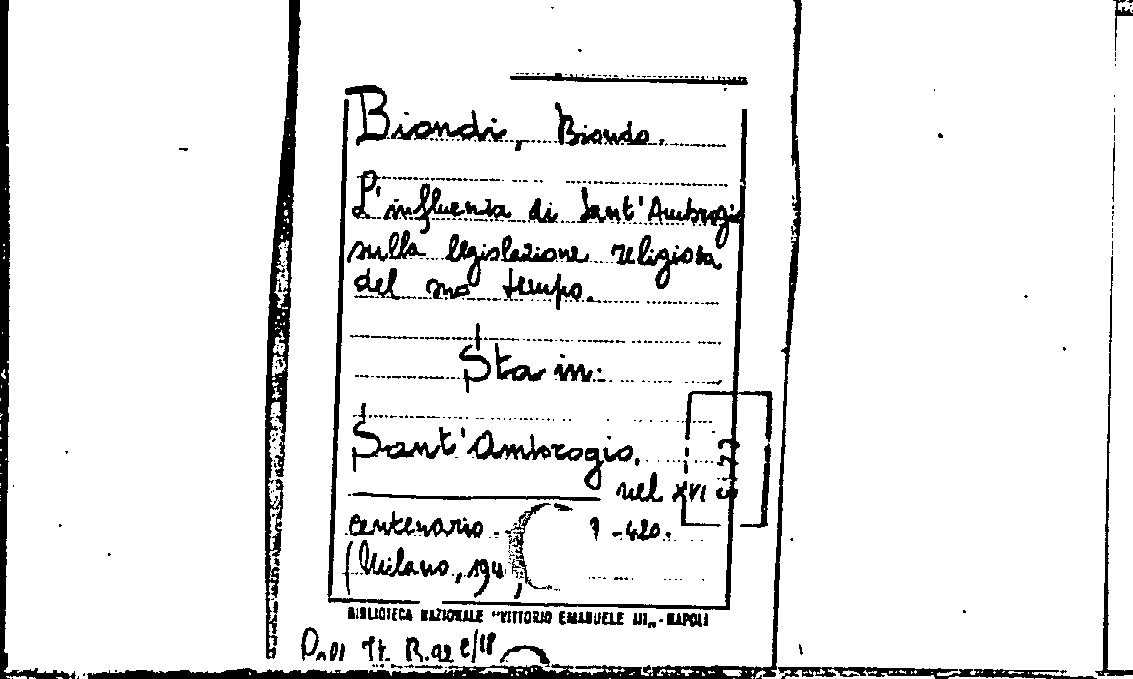 Biondi, Biondo.
L'influenza di Sant'Ambrogio
sulla legislazione religiosa
del suo tempo.
Sta in:
Sant'Ambrogio.
nel XVI
centenario. -420.
(Milano, 194
BIBLIOTECA NAZIONALE "VITTORIO EMANUELE III„ - NAPOLI